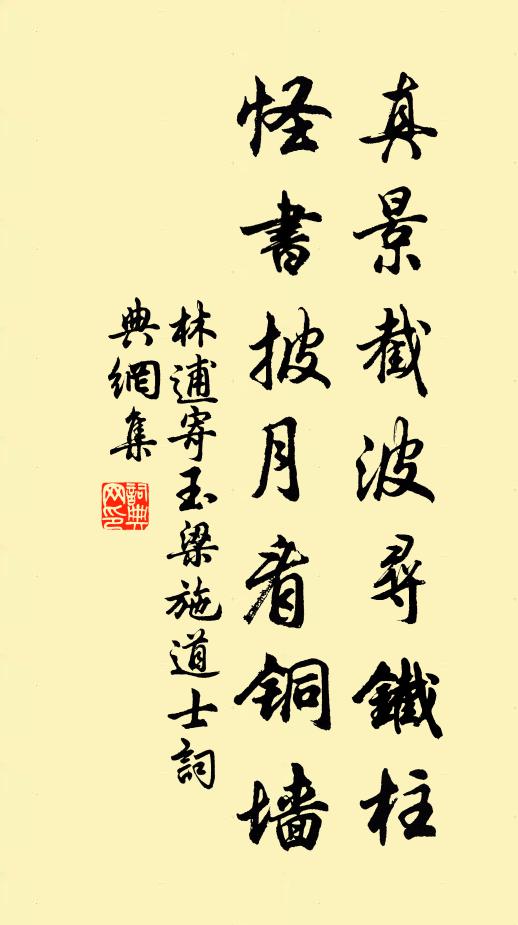 真景截波尋鐵柱
怪書披月看铜墙
林逋寄玉梁施道士詞
典網集
詞典
网印